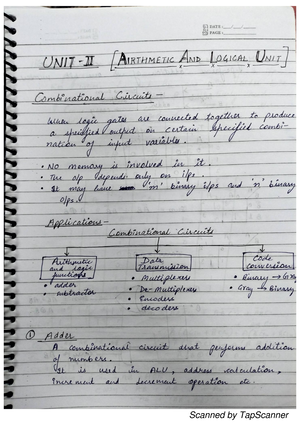 DATE:
PAGE:
UNIT-II [AIRTHMETIC AND LOGICAL UNIT]
Combinational Circuits -
When logic gates are connected together to produce
a specified output on certain specified combi-
nation of input variable.
• No memory is involved in it.
• The o/p depends only on i/ps.
• It may have 'm' binary i/ps and 'n' binary
o/ps.
Applications -
Combinational Circuits
Arithmetic and Logic functions
Data Transmission
Code Conversion
• adder
• subtractor
• Multiplexers
• De-Multiplexers
• Encoders
• decoders
• Binary → Gray
• Gray → Binary
① Adder
A combinational circuit that performs addition
of numbers.
It is used in ALU, address calculation,
increment and decrement operation etc.
Scanned by TapScanner